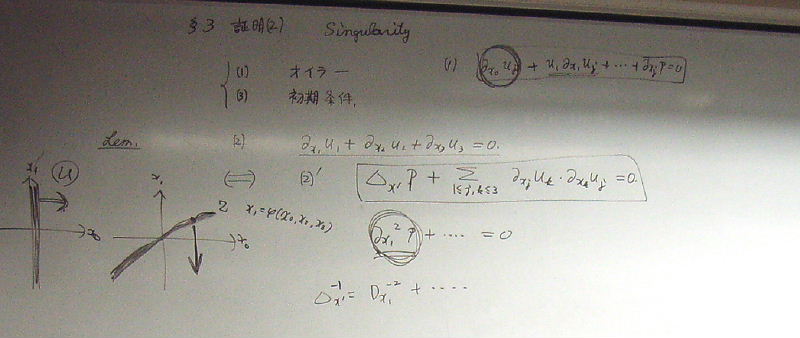 §3 証明(2) Singularity
(1) オイラー
(3) 初期条件.
(1) ∂x₀uⱼ + u₁∂x₁uⱼ + ⋯ + ∂xⱼP = 0
Lem. (2) ∂x₁u₁ + ∂x₂u₂ + ∂x₃u₃ = 0.
⟺ (2)' Δx'P + Σ 1≤j,k≤3 ∂xⱼuₖ · ∂xₖuⱼ = 0
x₁ x₀
x₁ x₀ Z x₁=φ(x₀,x₂,x₃)
∂x₁²P + ⋯ = 0
Δx'⁻¹ = Dx₁⁻² + ⋯